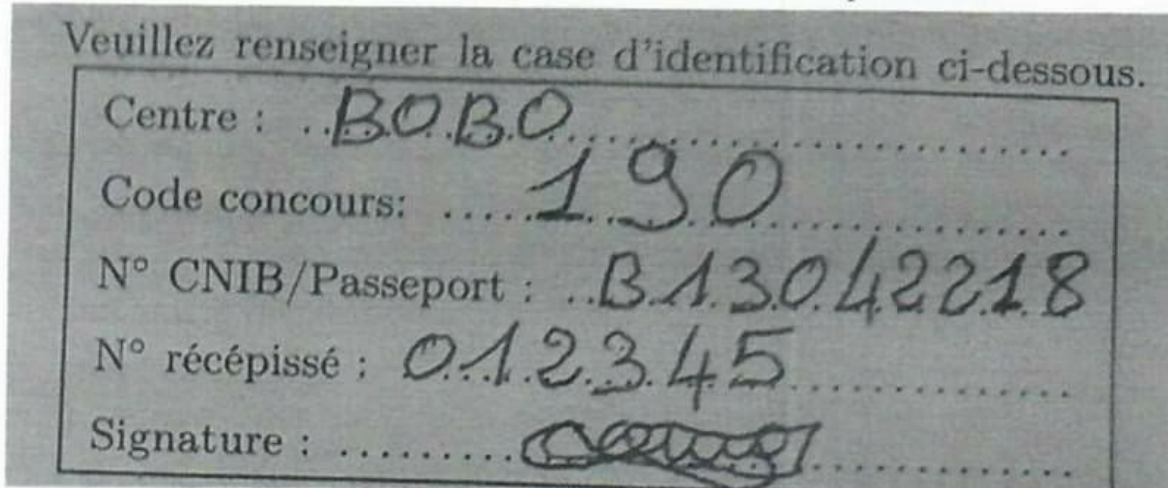 Veuillez renseigner la case d'identification ci-dessous.
Centre : BOBO
Code concours: 190
N° CNIB/Passeport : B13042218
N° récépissé : 012345
Signature :